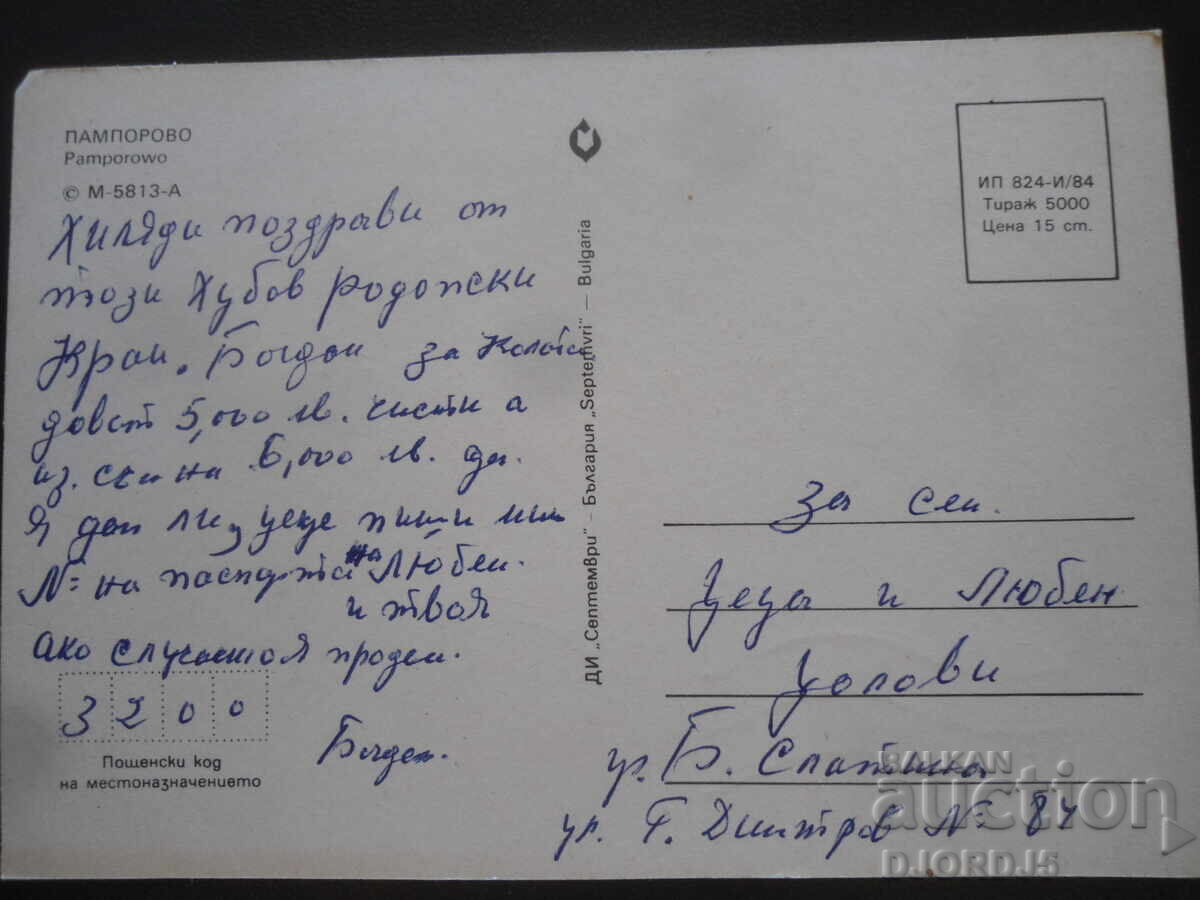 ПАМПОРОВО
Pamporowo
© М-5813-А
Хиляди поздрави от
този хубов родопски
край. Богдан за колата
доват 5,000 лв. чисти а
из. 6,000 лв. да
я дам ли, цеце пиши ми
№ на паспорта на Любен.
и твоя
ако случастоя продам.
3200
Пощенски код
на местоназначението
Богдан.
ДИ „Септември" — България „Septemvri" — Bulgaria
ИП 824-И/84
Тираж 5000
Цена 15 ст.
За сем.
Цеца и Любен
Цолови
гр. Б. Слатина
ул. Г. Димтров № 84
BALKAN
auction
DJORDJ5